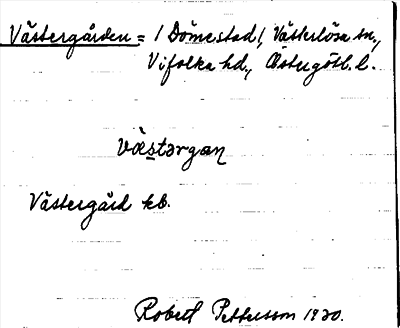 Västergården = / Dömestad /, Västerlösa sn.,
Vifolka hd., Östergötl. l.
västərgan
Västergård kb.
Robert Pettersson 1920.